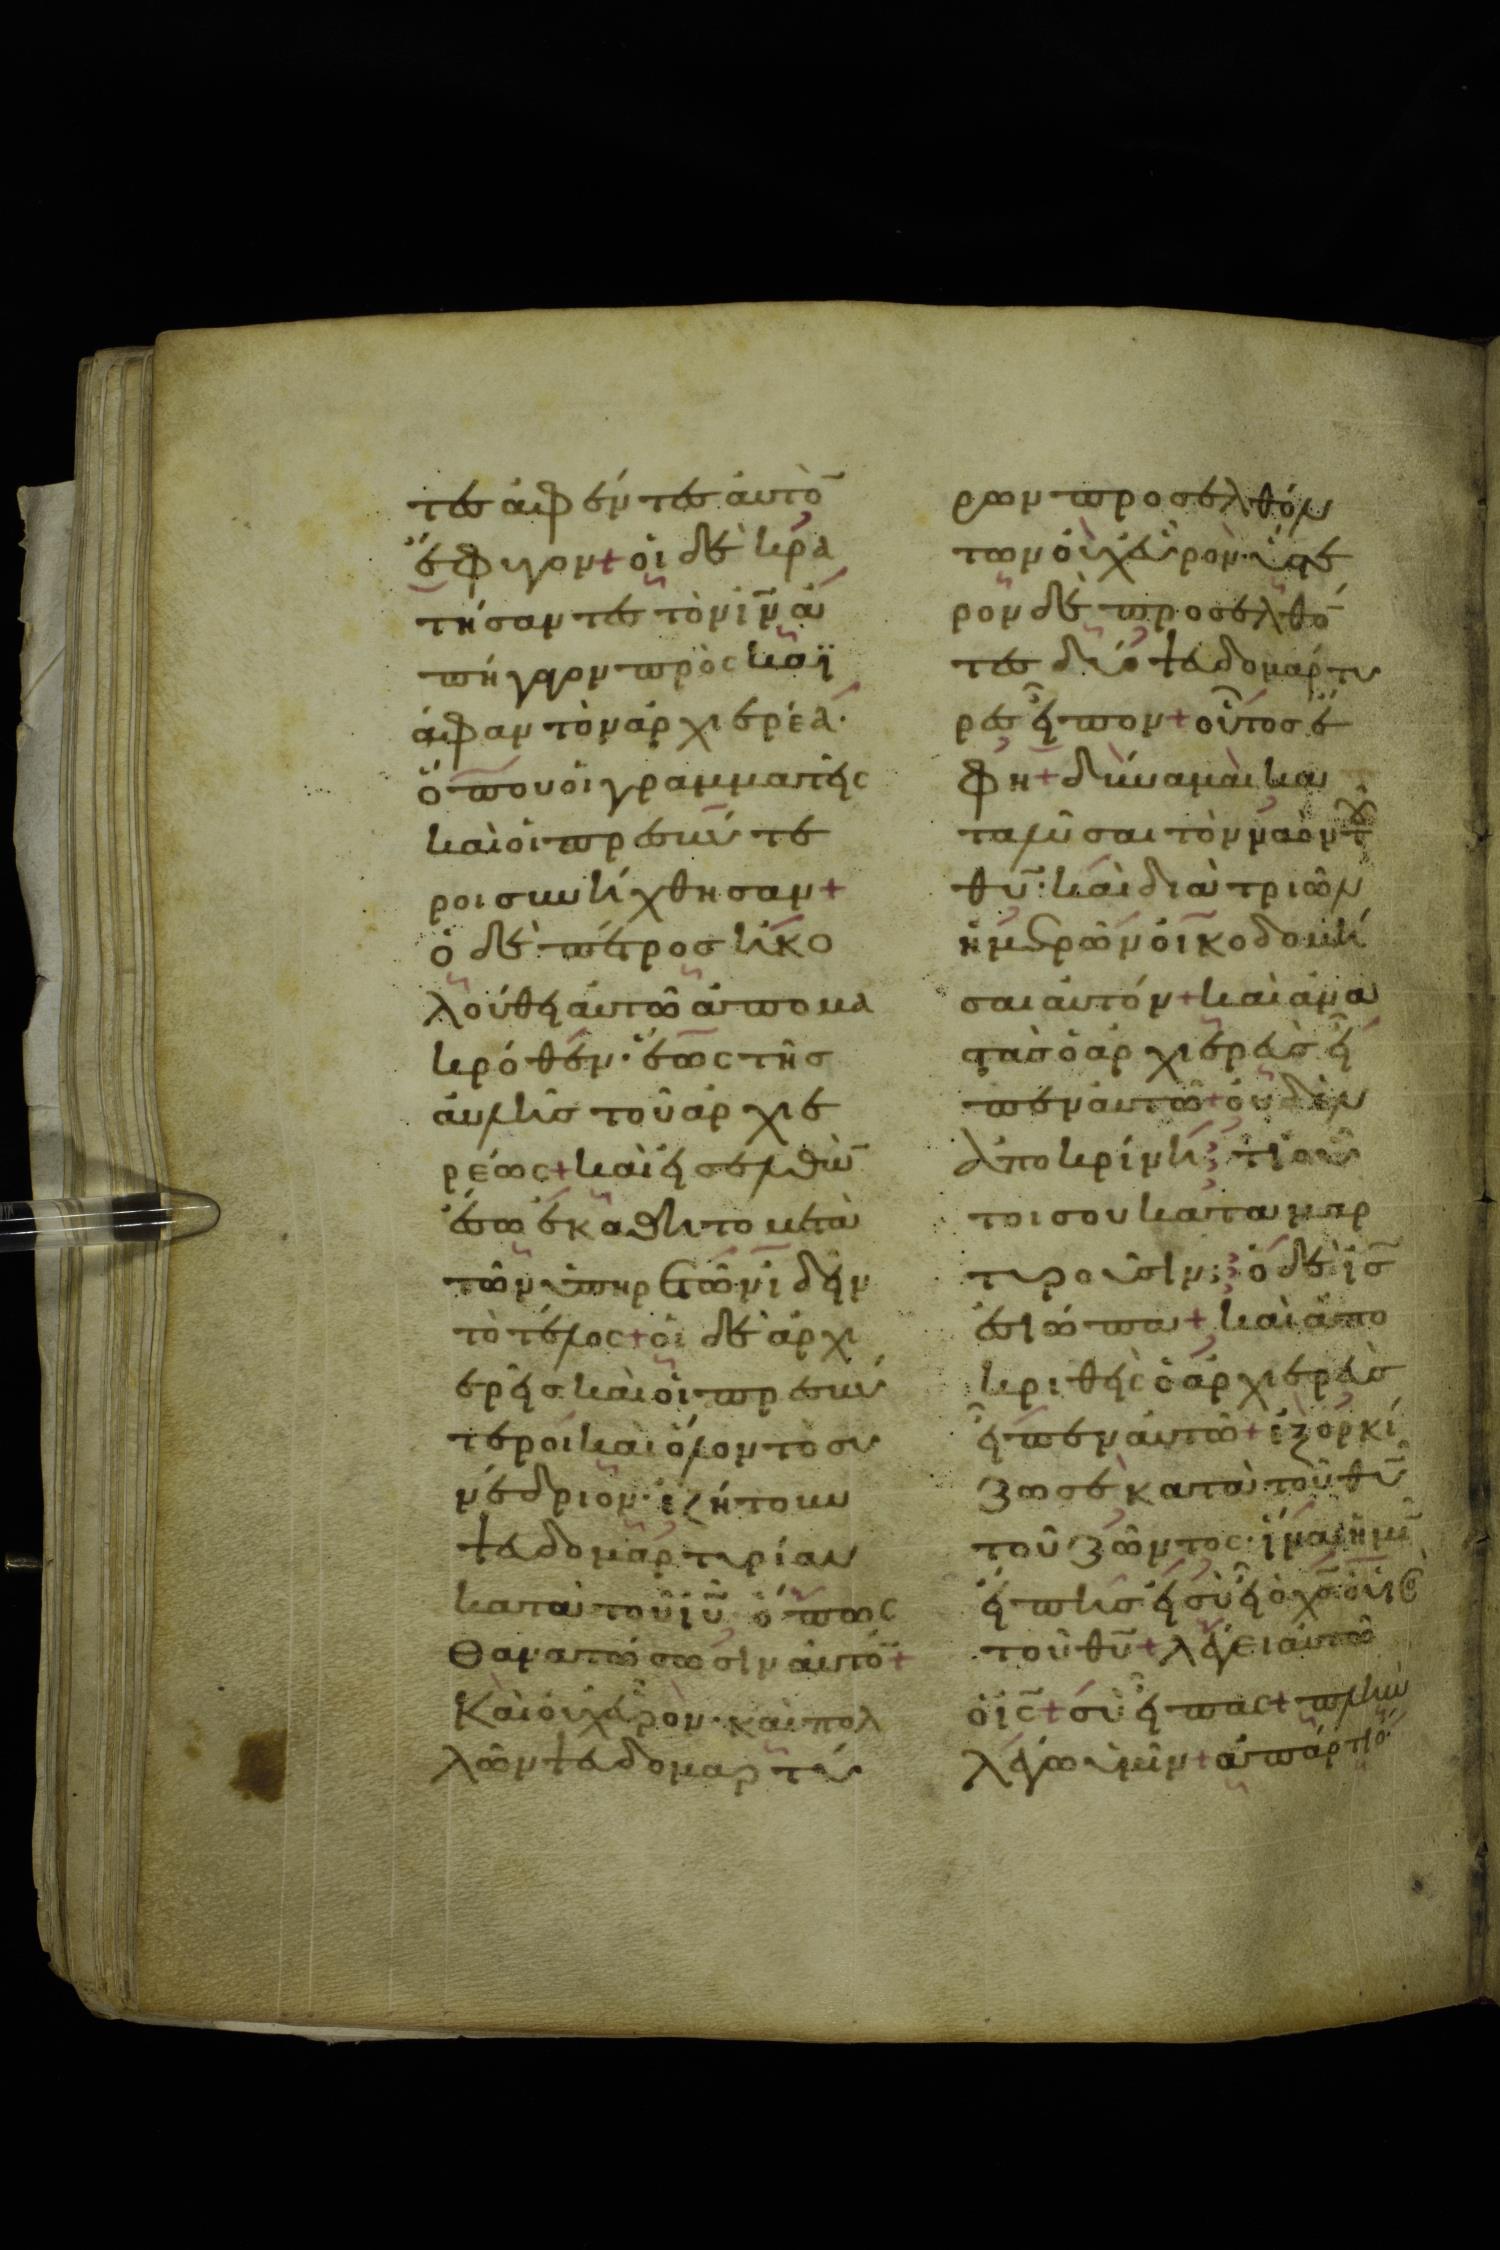 τες ἀφέντες ἀυτὸ̄
ἔφυγον + οἱ δὲ κρα
τήσαντες τὸν ι̅ν̅ ἀ
πήγαγον πρὸς καϊ
άφαν τὸν ἀρχιερέα·
ὅπου οἱ γραμματεῖς
καὶ οἱ πρεσβύτε
ροι συνήχθησαν +
ὁ δὲ πέτρος ἠκο
λούθει ἀυτῶ ἀπομα
κρόθεν· ἕως τῆς
ἀυλῆς τοῦ ἀρχιε
ρέως + καὶ εἰσελθὼ̄
ἔσω ἐκάθητο μετὰ
τῶν ὑπηρετῶν ἰδεῖν
τὸ τέλος + οἱ δὲ ἀρχι
ερεῖς καὶ οἱ πρεσβύ
τεροι καὶ ὅλον τὸ συ
νέδριον· ἐζήτουν
ψευδομαρτυρίαν
κατὰ τοῦ ι̅υ̅ ὅπως
θανατώσωσιν ἀυτό̄ +
Καὶ οὐχ εὗρον· καὶ πολ
λῶν ψευδομαρτύ
ρων προσελθόν
των οὐχ εὗρον· ὕστε
ρον δὲ προσελθό̄
τες δύο ψευδομάρτυ
ρες εἶπον + οὗτος ἔ
φη + δύναμαι κα
ταλῦσαι τὸν ναὸν τ
θ̅υ̅· καὶ διὰ τριῶν
ἡμερῶν οἰκοδομῆ
σαι ἀυτόν + καὶ ἀνα
στὰς ὁ ἀρχιερεὺς εἶ
πεν ἀυτῶ + οὐδὲν
ἀποκρίνη; τί οὗ
τοι σου καταμαρ
τυροῦσιν; ὁ δὲ ι̅ς̅
ἐσιώπα + καὶ ἀπο
κριθεὶς ὁ ἀρχιερεὺς
εἶπεν ἀυτῶ + ἐξορκί
ζω σὲ κατὰ τοῦ θ̅υ̅
τοῦ ζῶντος· ἵνα ἡμῖ̄
εἴπης εἰ σὺ εἶ ὁ χ̅ς̅ ὁ υἱὸς
τοῦ θ̅υ̅ + λέγει ἀυτῶ
ὁ ι̅ς̅ + σὺ εἶπας + πλὴν
λέγω ὑμῖν + ἀπάρτι ὄ